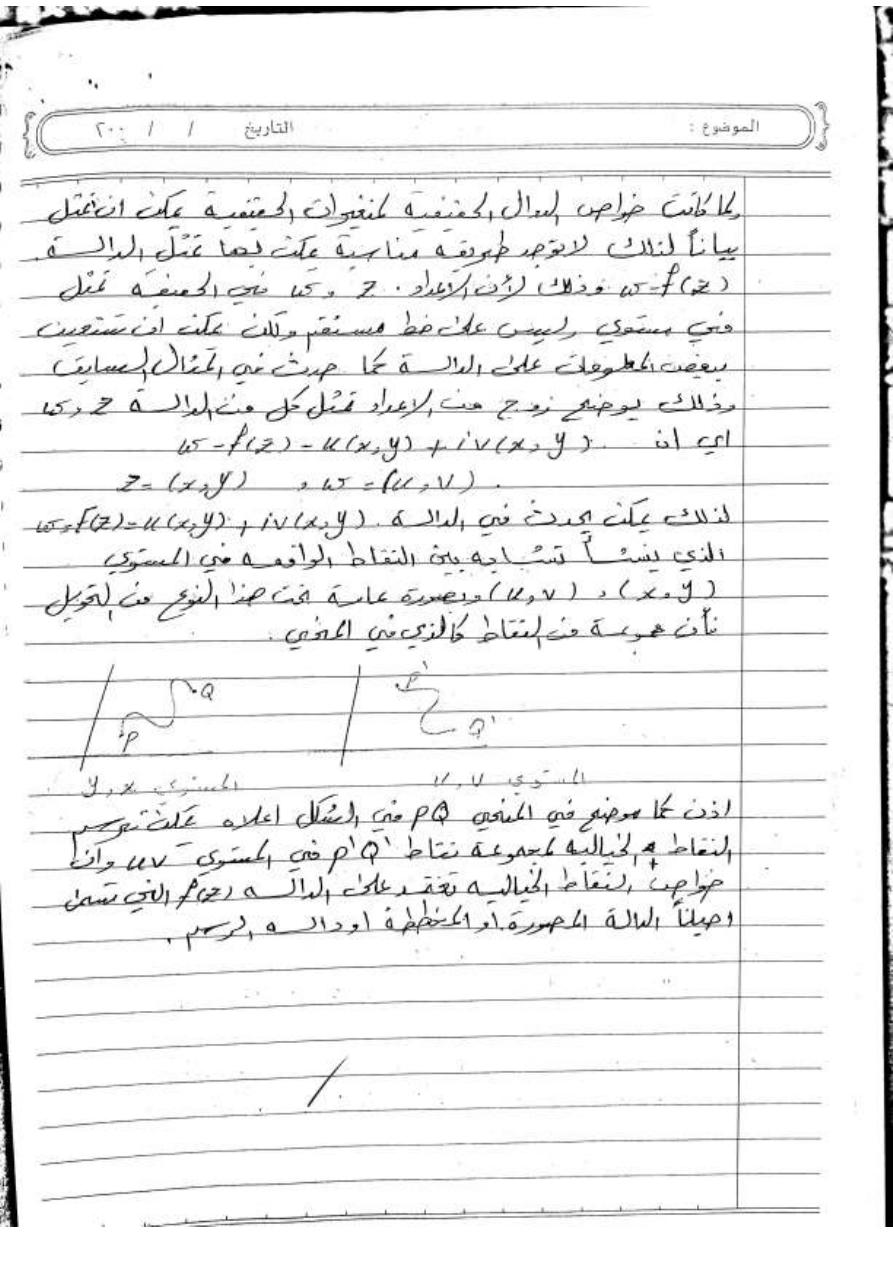 الموضوع : التاريخ / / ٢٠٠
لما كانت خواص الدوال الحقيقية لمتغيرات الحقيقية يمكن ان تمثل
بياناً لذلك لا توجد طريقه مناسبة يمكن بها تمثل الدالـــة
w=f(z) وذلك لأن الاعداد . z و w في الحقيقه تمثل
في مستوي وليس على خط مستقم ولكن يمكن ان تستعين
ببعض المعلومات على الدالـــة كما حدث في المثال السابق
وذلك يوضح زوج من الاعداد تمثل كل من الدالـــة z و w
اي ان w = f(z) = u(x,y) + iv(x,y)
z = (x,y) , w = (u,v) .
لذلك يمكن يحدث في الدالـــة w=f(z)=u(x,y)+iv(x,y)
الذي ينشـــأ تشـــابه بين النقاط الواقعه في المستوي
(x,y) , (u,v) وبصورة عامـة تحت هذا النوع من التحويل
فأن مجموعـــة من النقاط كالذي في المنحني .
Q P
P' Q'
المستوي x,y
المستوي u,v
اذن كما موضح في المنحني PQ في الشكل اعلاه يمكن ترسم
النقاط الخياليه لمجموعة نقاط P'Q' في المستوي uv وان
خواص النقاط الخياليـــه تعتمـد على الدالـــه f(z) التي تسمى
احياناً الدالة المصورة او المخططة او دالـــه الرسم .